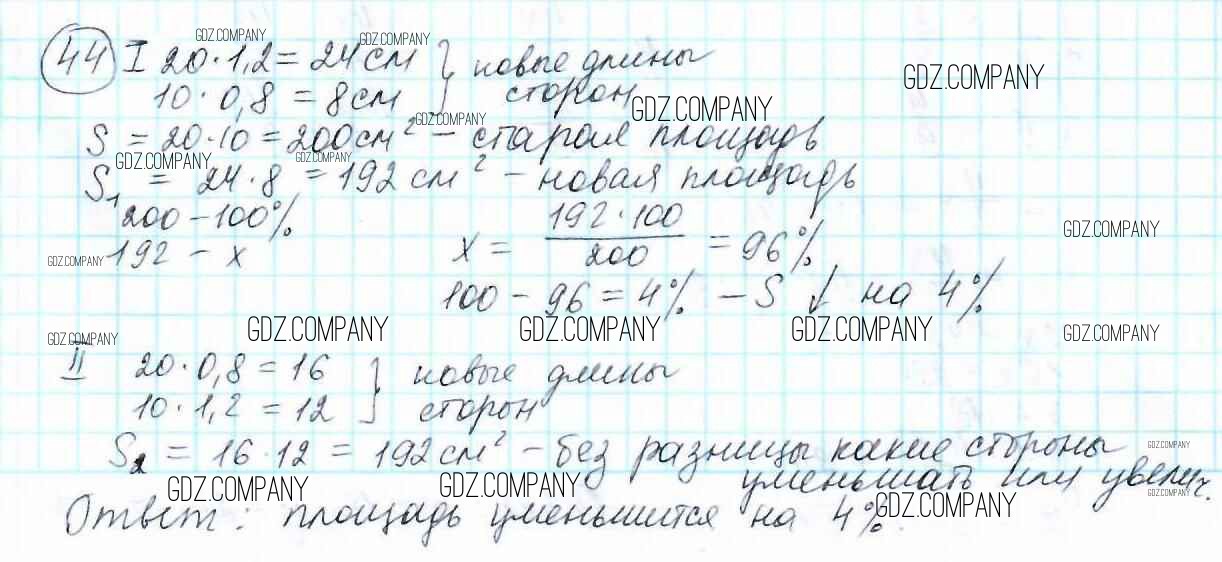 GDZ.COMPANY GDZ.COMPANY
44 I 20·1,2 = 24 см } новые длины GDZ.COMPANY
10·0,8 = 8 см сторон GDZ.COMPANY
GDZ.COMPANY
S = 20·10 = 200 см² – старая площадь
GDZ.COMPANY GDZ.COMPANY
S₁ = 24·8 = 192 см² – новая площадь
200 – 100%
192 – x x = 192·100/200 = 96% GDZ.COMPANY
GDZ.COMPANY
100 – 96 = 4% – S ↓ на 4%
GDZ.COMPANY GDZ.COMPANY GDZ.COMPANY GDZ.COMPANY GDZ.COMPANY
II 20·0,8 = 16 } новые длины
10·1,2 = 12 сторон
S₂ = 16·12 = 192 см² – без разницы какие стороны GDZ.COMPANY
уменьшать или увелич.
GDZ.COMPANY GDZ.COMPANY GDZ.COMPANY GDZ.COMPANY
Ответ: площадь уменьшится на 4%.